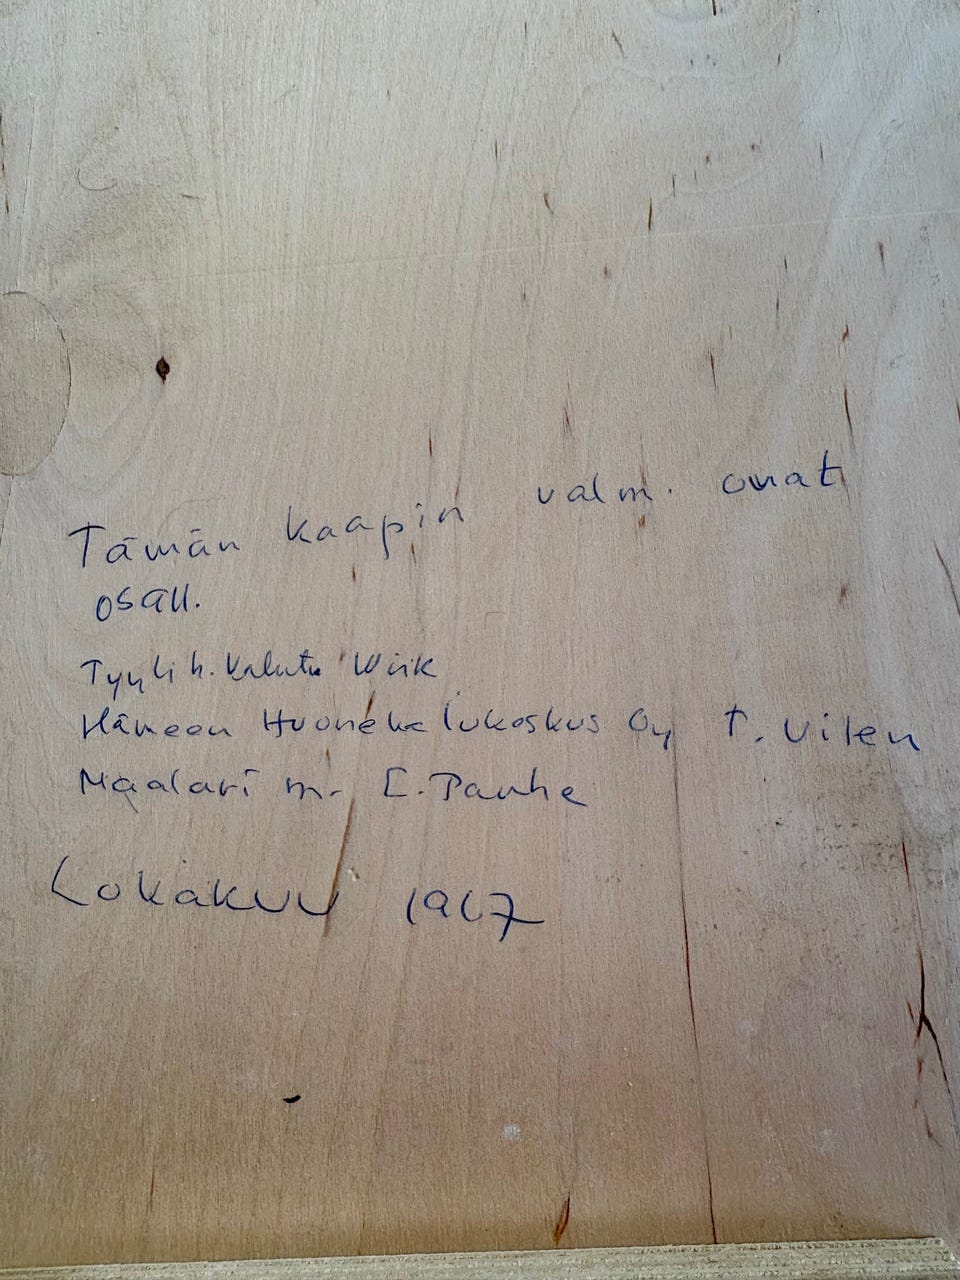 Tämän kaapin valm. ovat
osall.
Tyyli h. Kaluste Wiik
Hämeen Huonekalukeskus Oy T. Vilen
Maalari m. E.
Lokakuu 1967